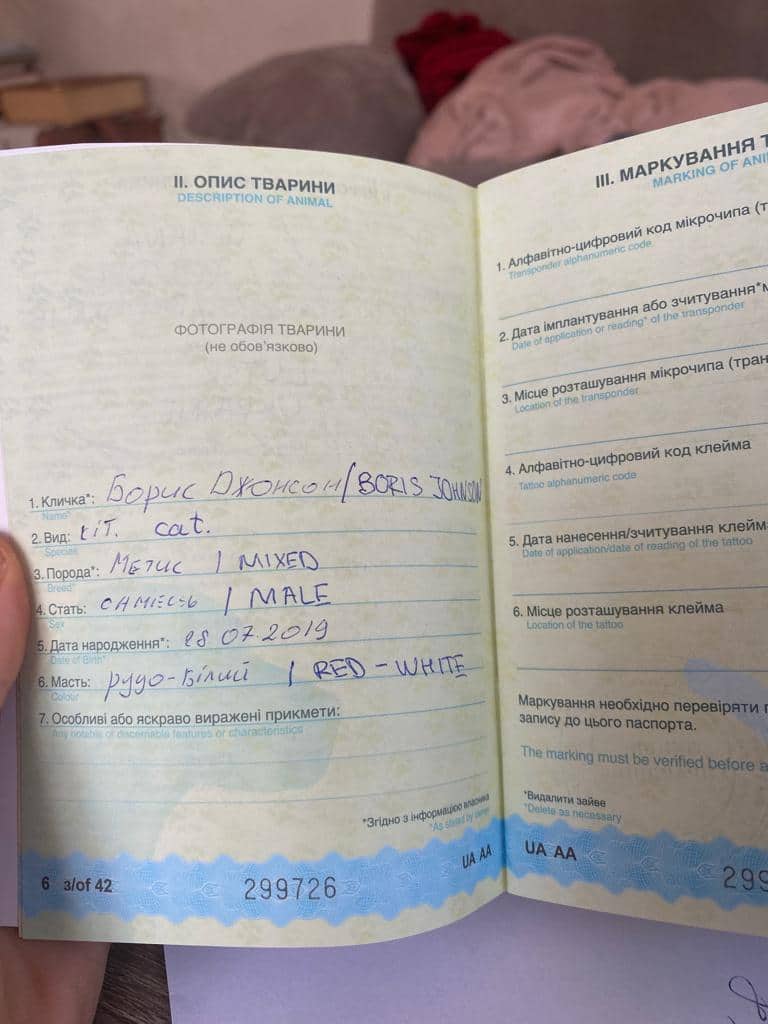 II. ОПИС ТВАРИНИ
DESCRIPTION OF ANIMAL
ФОТОГРАФІЯ ТВАРИНИ
(не обов'язково)
1. Кличка*: Борис Джонсон / BORIS JOHNSON
Name*
2. Вид: кіт. cat.
Species
3. Порода*: Метис / MIXED
Breed*
4. Стать: самець / MALE
Sex
5. Дата народження*: 28 07.2019
Date of Birth*
6. Масть: рудо-білий / RED-WHITE
Colour
7. Особливі або яскраво виражені прикмети:
Any notable or discernable features or characteristics
*Згідно з інформацією власника
*As stated by owner
UA AA
6 з/of 42
299726
III. МАРКУВАННЯ Т
MARKING OF ANI
1. Алфавітно-цифровий код мікрочипа (т
Transponder alphanumeric code
2. Дата імплантування або зчитування* м
Date of application or reading* of the transponder
3. Місце розташування мікрочипа (тран
Location of the transponder
4. Алфавітно-цифровий код клейма
Tattoo alphanumeric code
5. Дата нанесення/зчитування клейм
Date of application/date of reading of the tattoo
6. Місце розташування клейма
Location of the tattoo
Маркування необхідно перевіряти п
запису до цього паспорта.
The marking must be verified before a
*Видалити зайве
*Delete as necessary
UA AA
299